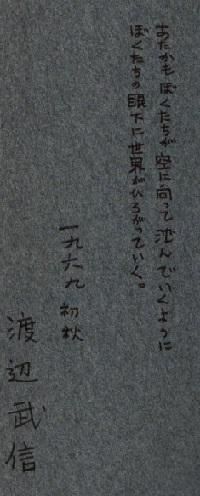 あたかもぼくたちが空に向って沈んでいくように
ぼくたちの眼下に世界がひろがっていく。
一九六九 初秋
渡辺武信